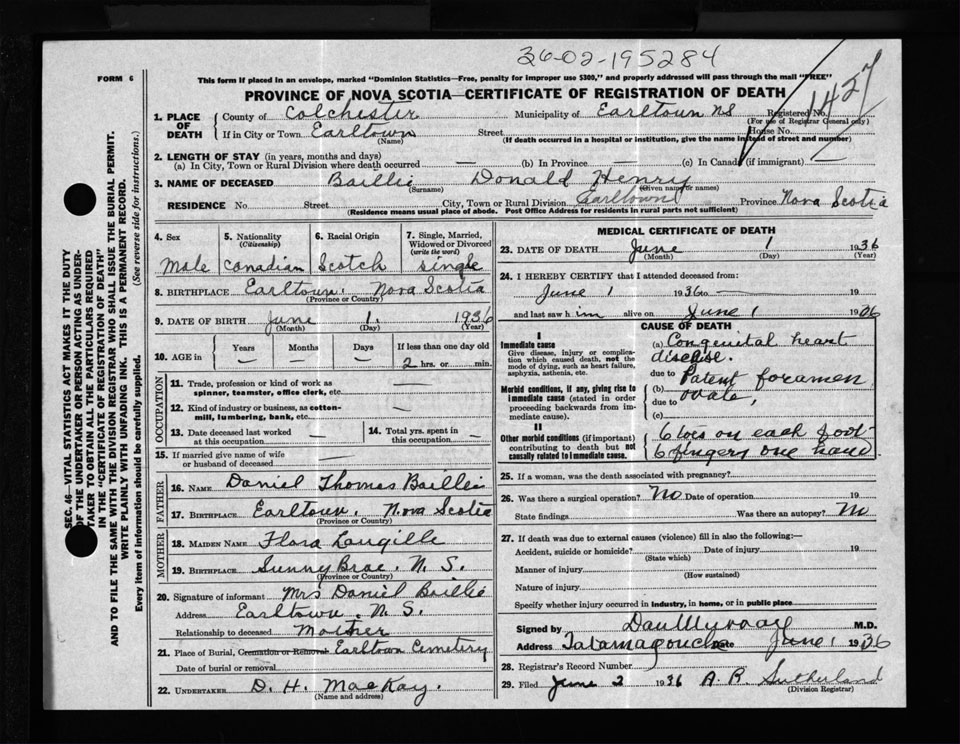 36-02-195284
FORM 6
This form if placed in an envelope, marked "Dominion Statistics—Free, penalty for improper use $300," and properly addressed will pass through the mail "FREE"
PROVINCE OF NOVA SCOTIA—CERTIFICATE OF REGISTRATION OF DEATH
1427
1. PLACE OF DEATH
County of Colchester Municipality of Earltown NS Registered No.
(For use of Registrar General only)
If in City or Town Earltown Street House No.
(Name) (If death occurred in a hospital or institution, give the name instead of street and number)
2. LENGTH OF STAY (in years, months and days)
(a) In City, Town or Rural Division where death occurred — (b) In Province — (c) In Canada (if immigrant) —
3. NAME OF DECEASED Baillie Donald Henry
(Surname) (Given name or names)
RESIDENCE No. Street City, Town or Rural Division Earltown Province Nova Scotia
(Residence means usual place of abode. Post Office Address for residents in rural parts not sufficient)
4. Sex 5. Nationality (Citizenship) 6. Racial Origin 7. Single, Married, Widowed or Divorced (write the word)
Male Canadian Scotch single
8. BIRTHPLACE Earltown. Nova Scotia
(Province or Country)
9. DATE OF BIRTH June 1. 1936
(Month) (Day) (Year)
10. AGE in Years Months Days If less than one day old
— — — 2 hrs. or min.
OCCUPATION
11. Trade, profession or kind of work as spinner, teamster, office clerk, etc. —
12. Kind of industry or business, as cotton-mill, lumbering, bank, etc. —
13. Date deceased last worked at this occupation — 14. Total yrs. spent in this occupation —
15. If married give name of wife or husband of deceased
FATHER
16. NAME Daniel Thomas Baillie
17. BIRTHPLACE Earltown. Nova Scotia
(Province or Country)
MOTHER
18. MAIDEN NAME Flora Langille
19. BIRTHPLACE Sunny Brae. N. S.
(Province or Country)
20. Signature of informant Mrs Daniel Baillie
Address Earltown. N. S.
Relationship to deceased Mother
21. Place of Burial, Cremation or Removal Earltown Cemetery
Date of burial or removal
22. UNDERTAKER D. H. MacKay.
(Name and address)
MEDICAL CERTIFICATE OF DEATH
23. DATE OF DEATH June 1 1936
(Month) (Day) (Year)
24. I HEREBY CERTIFY that I attended deceased from:
June 1 1936 to — 19
and last saw him alive on June 1 1936
CAUSE OF DEATH
I
Immediate cause
Give disease, injury or complication which caused death, not the mode of dying, such as heart failure, asphyxia, asthenia, etc.
(a) Congenital heart disease.
due to Patent foramen
Morbid conditions, if any, giving rise to immediate cause (stated in order proceeding backwards from immediate cause).
(b) ovale,
due to
(c)
II
Other morbid conditions (if important) contributing to death but not causally related to immediate cause.
6 toes on each foot
6 fingers one hand
25. If a woman, was the death associated with pregnancy?
26. Was there a surgical operation? No Date of operation 19
State findings Was there an autopsy? No
27. If death was due to external causes (violence) fill in also the following:—
Accident, suicide or homicide? Date of injury 19
(State which)
Manner of injury
(How sustained)
Nature of injury
Specify whether injury occurred in industry, in home, or in public place
Signed by Dan Murray M.D.
Address Tatamagouche Date June 1 1936
28. Registrar's Record Number
29. Filed June 2 1936 A. R. Sutherland
(Division Registrar)
SEC. 46—VITAL STATISTICS ACT MAKES IT THE DUTY
OF THE UNDERTAKER OR PERSON ACTING AS UNDER-
TAKER TO OBTAIN ALL THE PARTICULARS REQUIRED
IN THE "CERTIFICATE OF REGISTRATION OF DEATH"
AND TO FILE THE SAME WITH THE DIVISION REGISTRAR WHO SHALL ISSUE THE BURIAL PERMIT.
WRITE PLAINLY WITH UNFADING INK. THIS IS A PERMANENT RECORD.
Every item of information should be carefully supplied. (See reverse side for instructions.)